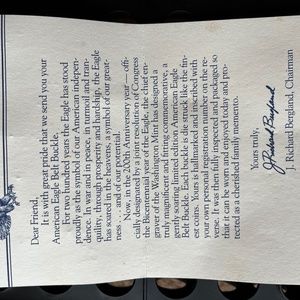 Dear Friend,
It is with great pride that we send you your
American Eagle Belt Buckle.
For two hundred years the Eagle has stood
proudly as the symbol of our American indepen-
dence. In war and in peace, in turmoil and tran-
quility, through prosperity and hardship, the Eagle
has soared in the heavens, a symbol of our great-
ness . . . and of our potential.
Now, in the 200th Anniversary year — offi-
cially designated by a joint resolution of Congress
the Bicentennial year of the Eagle, the chief en-
graver of the Washington Mint has designed a
truly magnificent and fitting commemorative, a
gently soaring limited edition American Eagle
Belt Buckle. Each buckle is struck like the fin-
est coins. Yours is hallmarked and inscribed with
your own personal registration number on the re-
verse. It was then fully inspected and packaged so
that it can be worn and enjoyed today and pro-
tected as a cherished family memento.
Yours truly,
J. Richard Bergland
J. Richard Bergland, Chairman